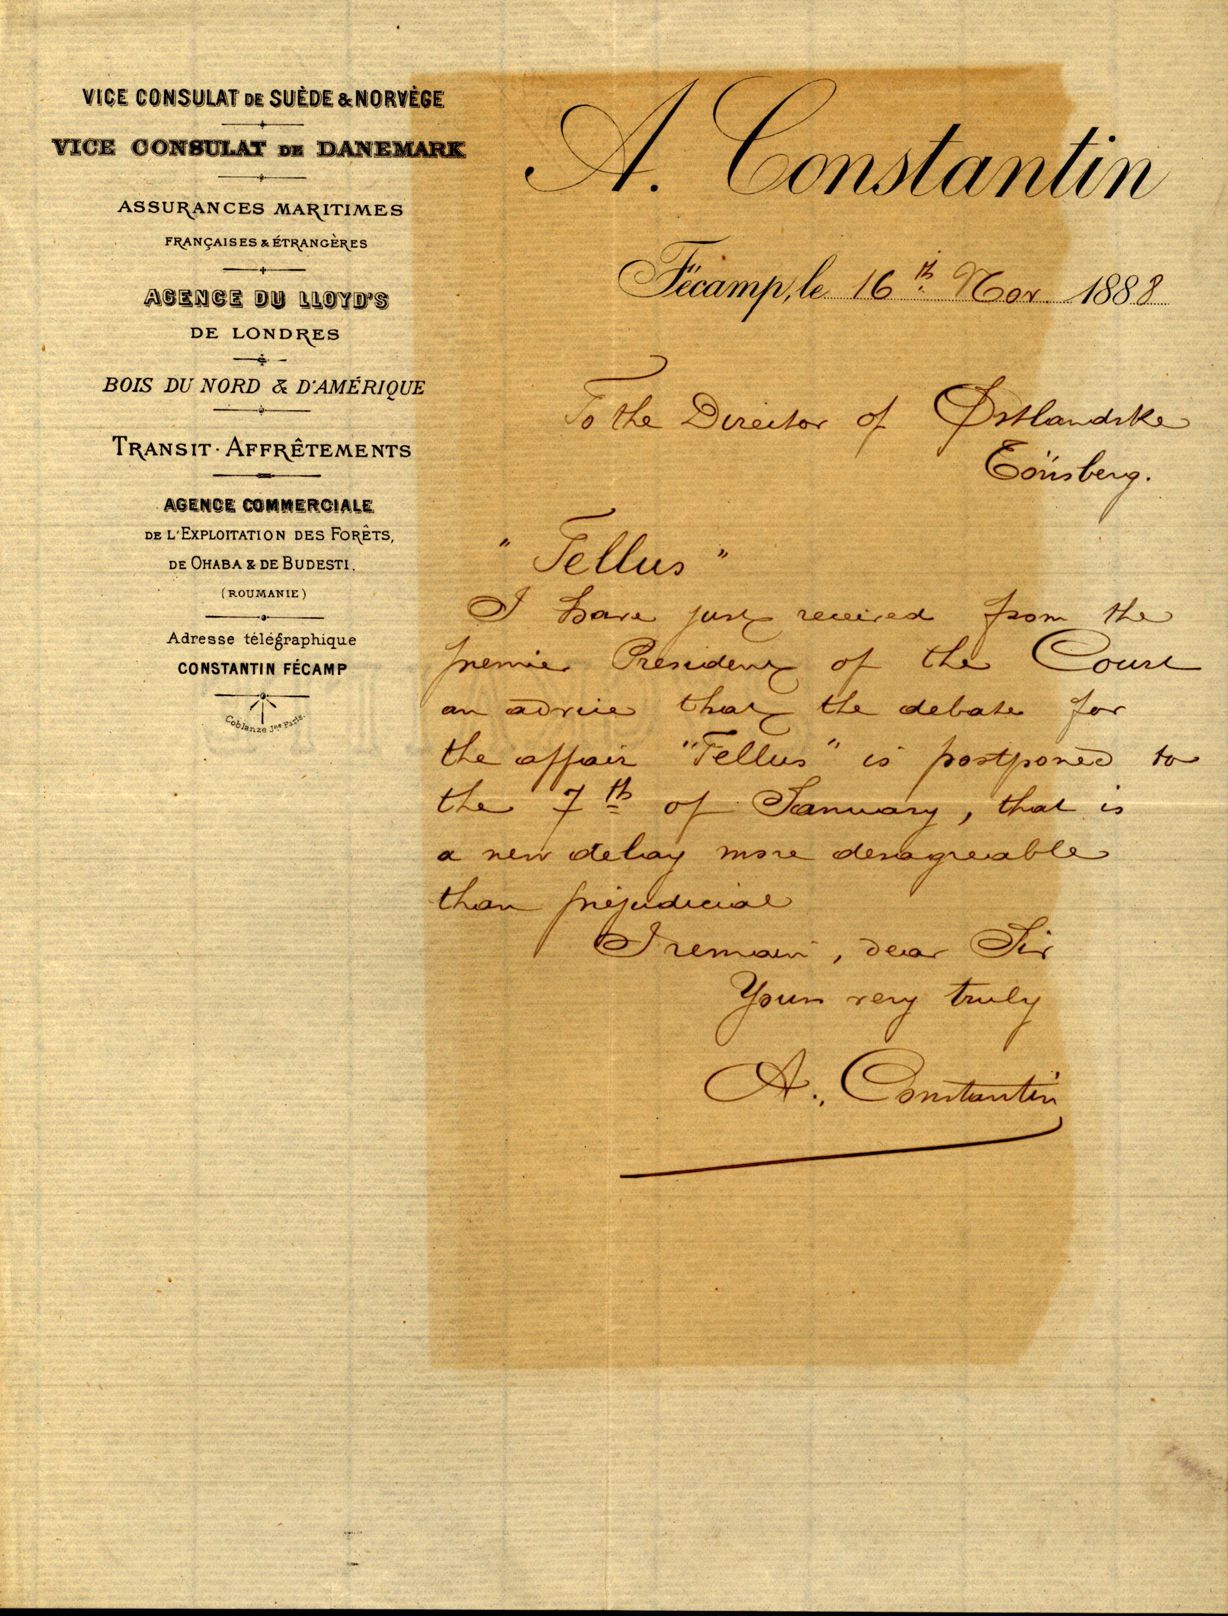 VICE CONSULAT DE SUÈDE & NORVÈGE
VICE CONSULAT DE DANEMARK
ASSURANCES MARITIMES
FRANÇAISES & ÉTRANGÈRES
AGENCE DU LLOYD'S
DE LONDRES
BOIS DU NORD & D'AMÉRIQUE
TRANSIT · AFFRÊTEMENTS
AGENCE COMMERCIALE
DE L'EXPLOITATION DES FORÊTS,
DE OHABA & DE BUDESTI.
(ROUMANIE)
Adresse télégraphique
CONSTANTIN FÉCAMP
Coblanze Jne Paris.
A. Constantin
Fécamp, le 16th Nov. 1888
To the Director of Østlandske
Tönsberg.
"Tellus"
I have just received from the
premier President of the Court
an advice that the debate for
the affair "Tellus" is postponed to
the 7th of January, that is
a new delay more desagreable
than prejudicial
I remain, dear Sir
Yours very truly
A. Constantin